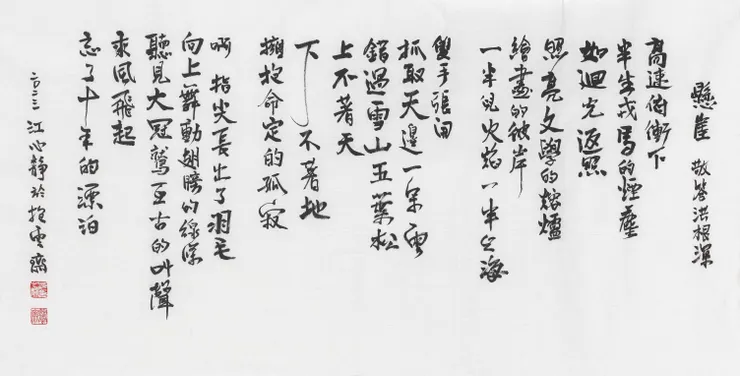 懸崖 敬答洪根深
高速俯衝下
半生戎馬的煙塵
如迴光返照
照亮文學的熔爐
繪畫的彼岸
一半是火焰一半是海
雙手張開
抓取天邊一朵雲
錯過雪山五葉松
上不著天
下不著地
擁抱命定的孤寂
啊 指尖長出了羽毛
向上舞動翅膀的線條
聽見大冠鷲亙古的叫聲
乘風飛起
忘了十年的漂泊
二〇二三江心靜於抱雲齋